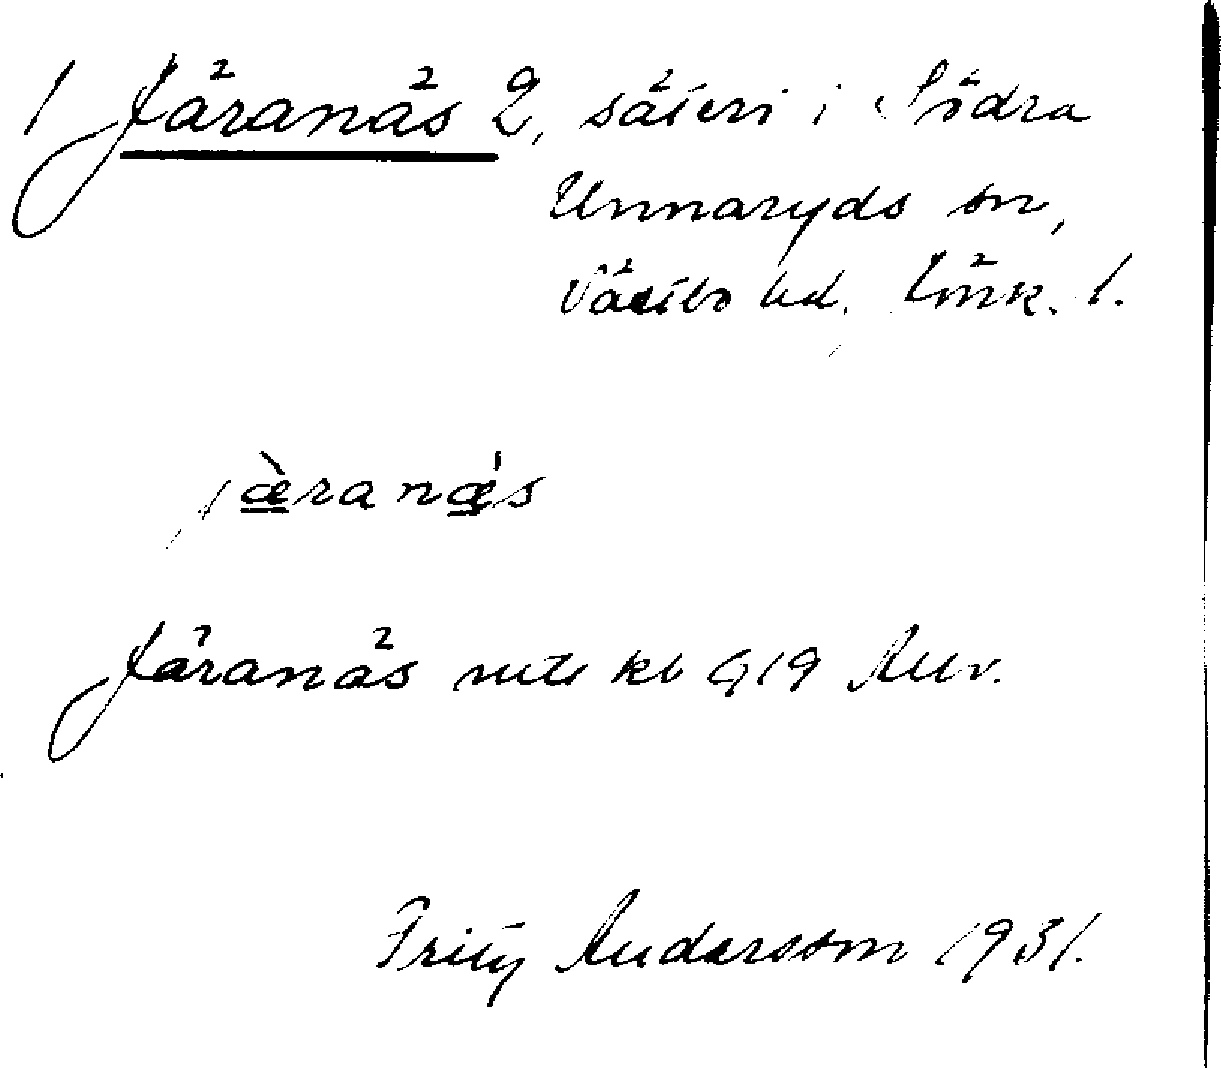 1 Järanäs 2, säteri i Södra
Unnaryds sn,
Västbo hd, Jönk. l.
jæ̀ranæ̀s
Järanäs mtl kb 919 Anv.
Fritz Andersson 1931.